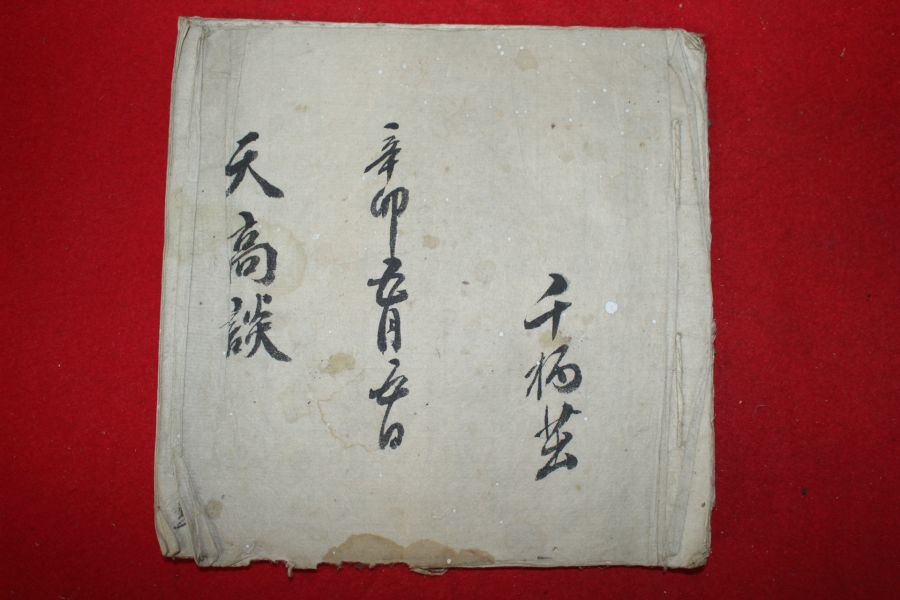 千柄茁
辛卯五月五日
天高談